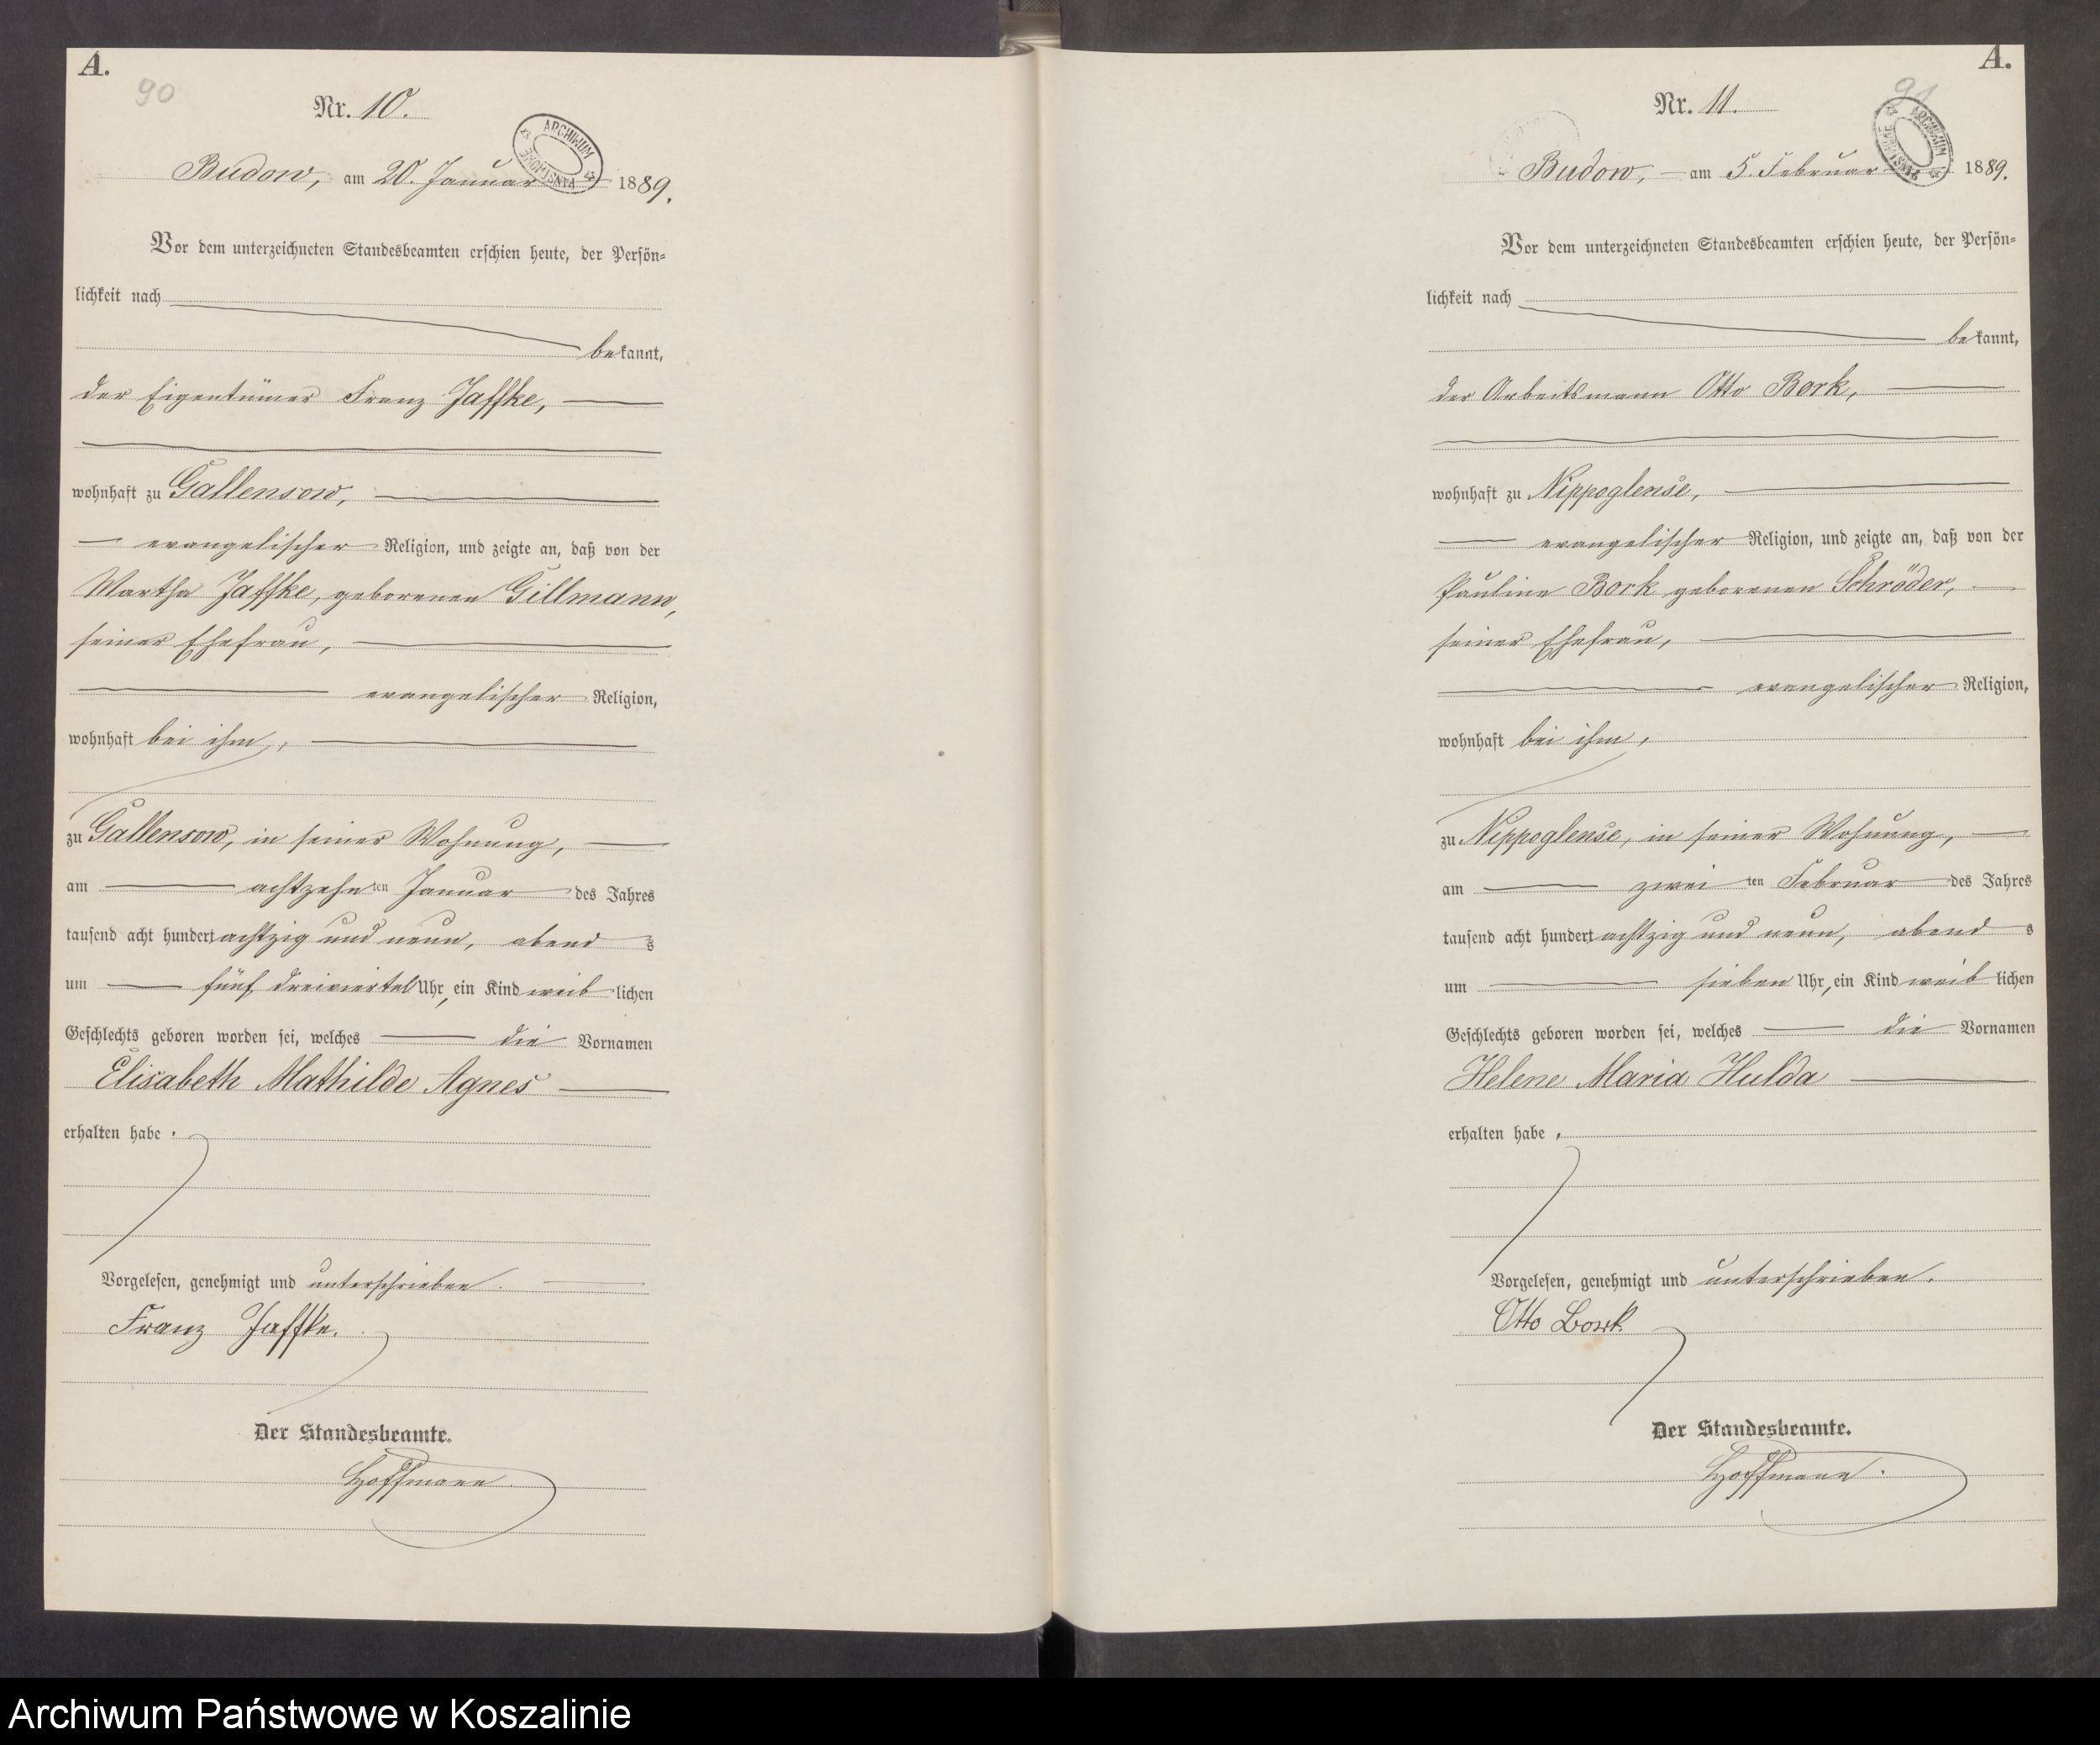 A.
90
Nr. 10.
ARCHIWUM PAŃSTWOWE
Budow, am 20. Januar 1889.
Vor dem unterzeichneten Standesbeamten erschien heute, der Persön-
lichkeit nach
bekannt,
der Eigentümer Franz Jaffke,
wohnhaft zu Gallensow,
evangelischer Religion, und zeigte an, daß von der
Martha Jaffke, geborenen Gillmann,
seiner Ehefrau,
evangelischer Religion,
wohnhaft bei ihm,
zu Gallensow, in seiner Wohnung,
am achtzehnten Januar des Jahres
tausend acht hundert achtzig und neun, abends
um fünf dreiviertel Uhr, ein Kind weiblichen
Geschlechts geboren worden sei, welches die Vornamen
Elisabeth Mathilde Agnes
erhalten habe.
Vorgelesen, genehmigt und unterschrieben.
Franz Jaffke.
Der Standesbeamte.
Hoffmann.
A.
91
Nr. 11.
ARCHIWUM PAŃSTWOWE
Budow, am 5. Februar 1889.
Vor dem unterzeichneten Standesbeamten erschien heute, der Persön-
lichkeit nach
bekannt,
der Arbeitsmann Otto Bork,
wohnhaft zu Nippoglense,
evangelischer Religion, und zeigte an, daß von der
Pauline Bork geborenen Schröder,
seiner Ehefrau,
evangelischer Religion,
wohnhaft bei ihm,
zu Nippoglense, in seiner Wohnung,
am zweiten Februar des Jahres
tausend acht hundert achtzig und neun, abends
um sieben Uhr, ein Kind weiblichen
Geschlechts geboren worden sei, welches die Vornamen
Helene Maria Hulda
erhalten habe.
Vorgelesen, genehmigt und unterschrieben.
Otto Bork
Der Standesbeamte.
Hoffmann.
Archiwum Państwowe w Koszalinie